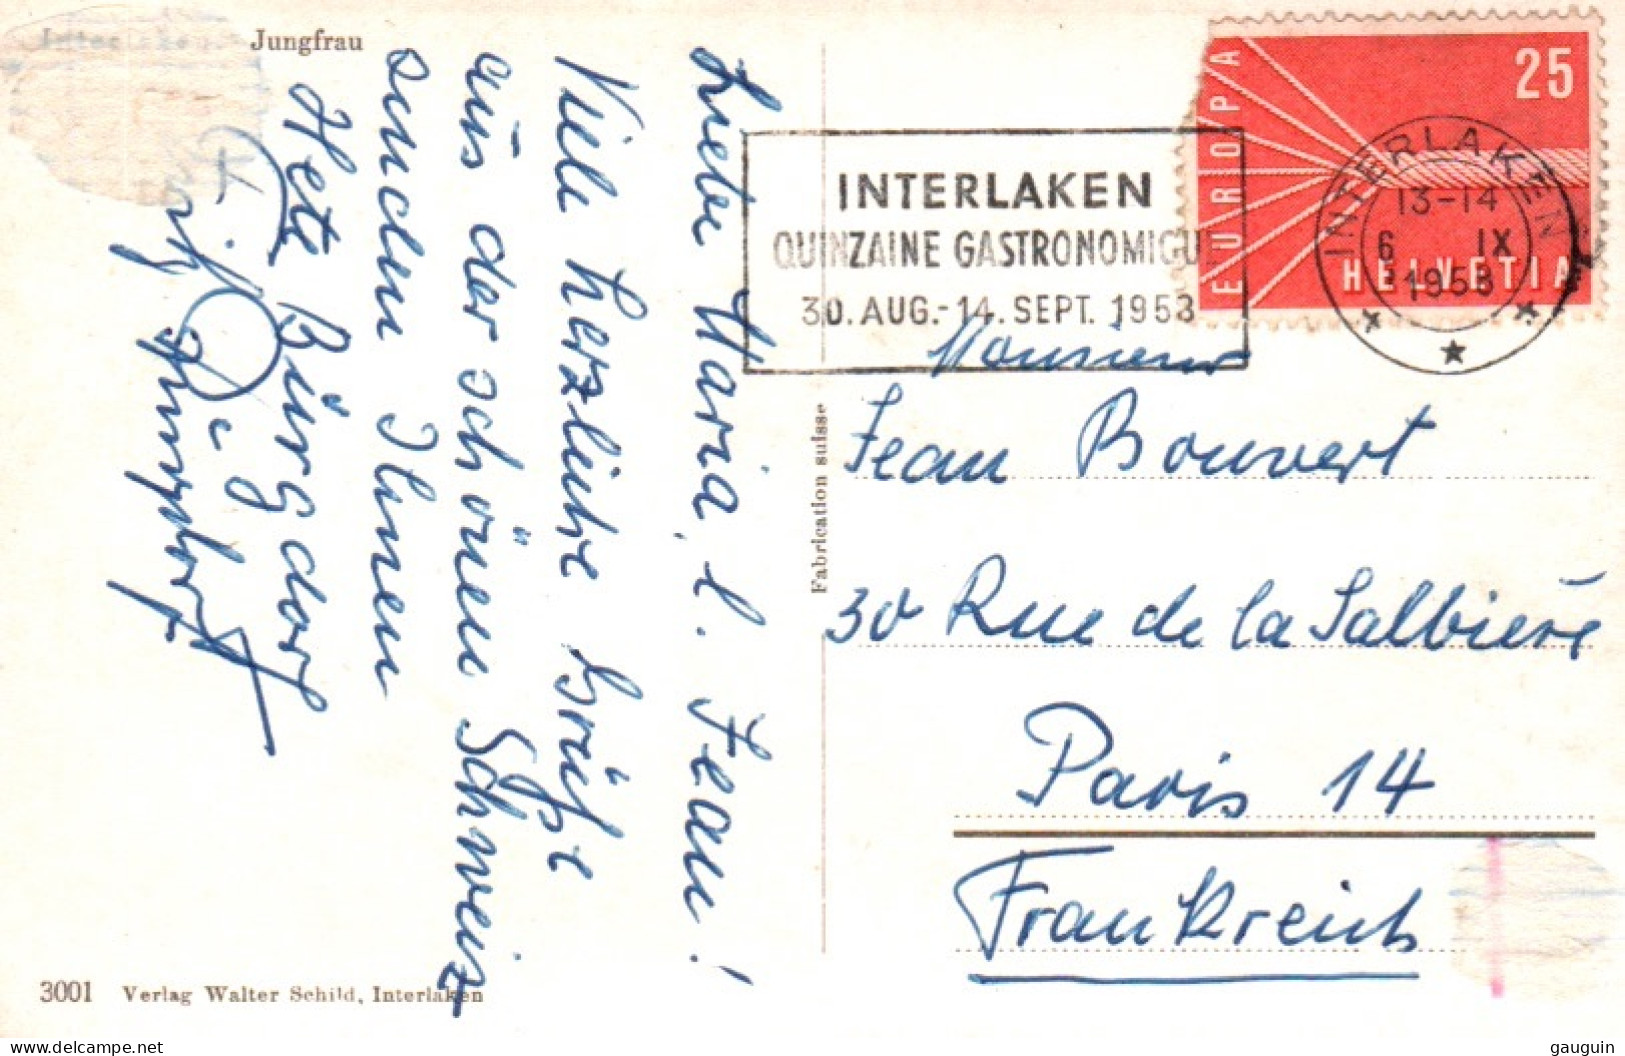 Interlaken. Jungfrau
Liebe Maria, l. Jean!
Viele herzliche Grüße
aus der schönen Schweiz
senden Ihnen
Hete Burgdorf
INTERLAKEN
QUINZAINE GASTRONOMIQUE
30. AUG.-14. SEPT. 1958
EUROPA
25
HELVETIA
INTERLAKEN
13-14
6 IX
1958
Fabrication suisse
Monsieur
Jean Bouvert
30 Rue de la Salbière
Paris 14
Frankreich
3001 Verlag Walter Schild, Interlaken
www.delcampe.net
gauguin